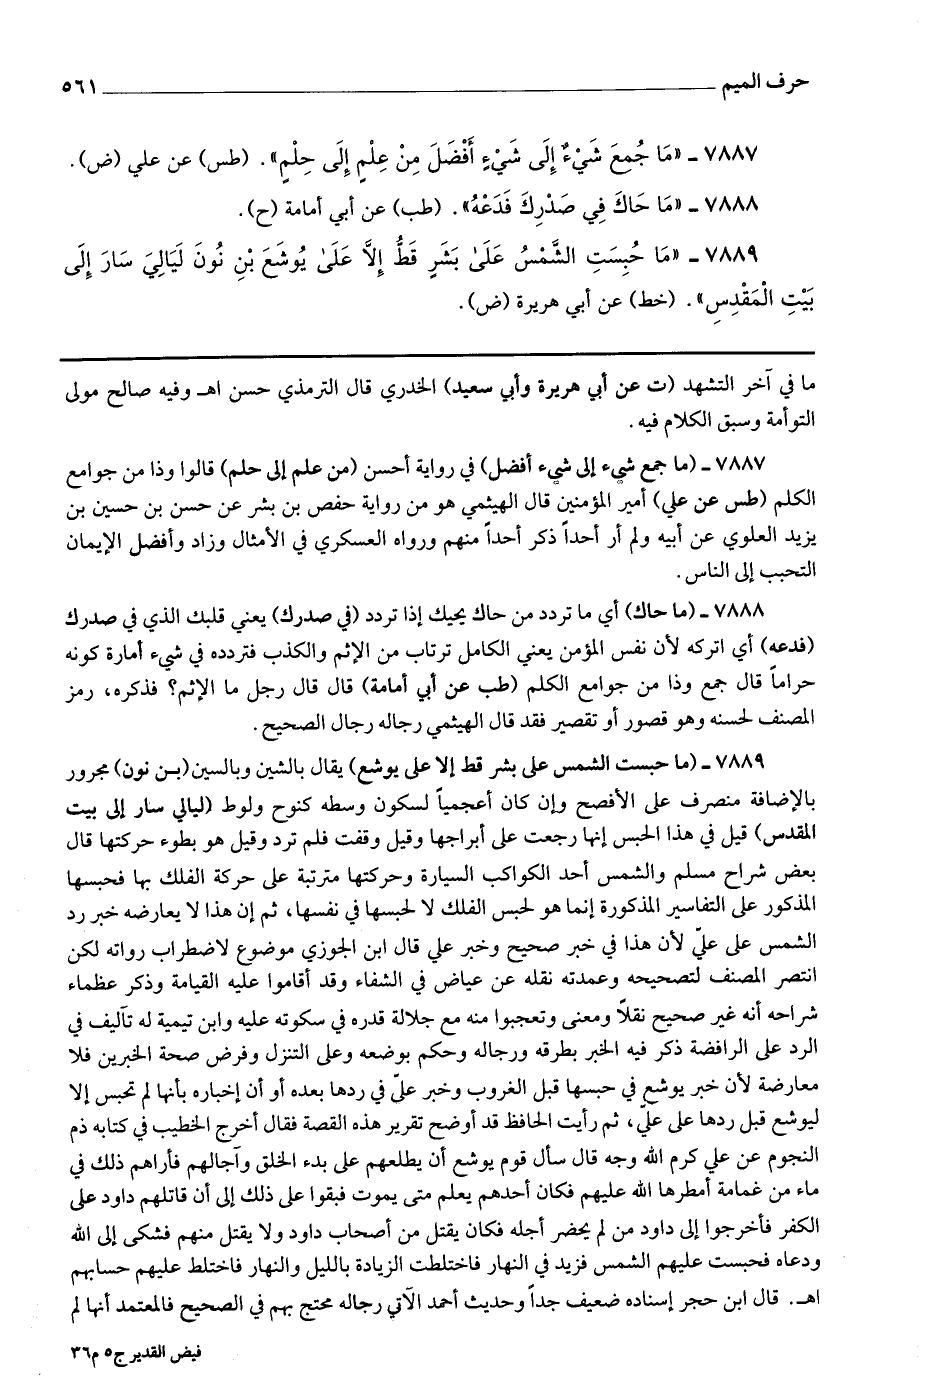 حرف الميم ٥٦١
٧٨٨٧ ـ «مَا جُمِعَ شَيْءٌ إِلَى شَيْءٍ أَفْضَلَ مِنْ عِلْمٍ إِلَى حِلْمٍ». (طس) عن علي (ض).
٧٨٨٨ ـ «مَا حَاكَ فِي صَدْرِكَ فَدَعْهُ». (طب) عن أبي أمامة (ح).
٧٨٨٩ ـ «مَا حُبِسَتِ الشَّمْسُ عَلَىٰ بَشَرٍ قَطُّ إِلَّا عَلَىٰ يُوشَعَ بْنِ نُونَ لَيَالِيَ سَارَ إِلَى
بَيْتِ الْمَقْدِسِ». (خط) عن أبي هريرة (ض).
ما في آخر التشهد (ت عن أبي هريرة وأبي سعيد) الخدري قال الترمذي حسن اهـ وفيه صالح مولى
التوأمة وسبق الكلام فيه.
٧٨٨٧ ـ (ما جمع شيء إلى شيء أفضل) في رواية أحسن (من علم إلى حلم) قالوا وذا من جوامع
الكلم (طس عن علي) أمير المؤمنين قال الهيثمي هو من رواية حفص بن بشر عن حسن بن حسين بن
يزيد العلوي عن أبيه ولم أر أحداً ذكر أحداً منهم ورواه العسكري في الأمثال وزاد وأفضل الإيمان
التحبب إلى الناس.
٧٨٨٨ ـ (ما حاك) أي ما تردد من حاك يحيك إذا تردد (في صدرك) يعني قلبك الذي في صدرك
(فدعه) أي اتركه لأن نفس المؤمن يعني الكامل ترتاب من الإثم والكذب فتردده في شيء أمارة كونه
حراماً قال جمع وذا من جوامع الكلم (طب عن أبي أمامة) قال قال رجل ما الإثم؟ فذكره، رمز
المصنف لحسنه وهو قصور أو تقصير فقد قال الهيثمي رجاله رجال الصحيح.
٧٨٨٩ ـ (ما حبست الشمس على بشر قط إلا على يوشع) يقال بالشين وبالسين (بـن نون) مجرور
بالإضافة منصرف على الأفصح وإن كان أعجمياً لسكون وسطه كنوح ولوط (ليالي سار إلى بيت
المقدس) قيل في هذا الحبس إنها رجعت على أبراجها وقيل وقفت فلم ترد وقيل هو بطوء حركتها قال
بعض شراح مسلم والشمس أحد الكواكب السيارة وحركتها مترتبة على حركة الفلك بها فحبسها
المذكور على التفاسير المذكورة إنما هو لحبس الفلك لا لحبسها في نفسها، ثم إن هذا لا يعارضه خبر رد
الشمس على عليّ لأن هذا في خبر صحيح وخبر علي قال ابن الجوزي موضوع لاضطراب رواته لكن
انتصر المصنف لتصحيحه وعمدته نقله عن عياض في الشفاء وقد أقاموا عليه القيامة وذكر عظماء
شراحه أنه غير صحيح نقلاً ومعنى وتعجبوا منه مع جلالة قدره في سكوته عليه وابن تيمية له تآليف في
الرد على الرافضة ذكر فيه الخبر بطرقه ورجاله وحكم بوضعه وعلى التنزل وفرض صحة الخبرين فلا
معارضة لأن خبر يوشع في حبسها قبل الغروب وخبر عليّ في ردها بعده أو أن إخباره بأنها لم تحبس إلا
ليوشع قبل ردها على عليّ، ثم رأيت الحافظ قد أوضح تقرير هذه القصة فقال أخرج الخطيب في كتابه ذم
النجوم عن علي كرم الله وجه قال سأل قوم يوشع أن يطلعهم على بدء الخلق وآجالهم فأراهم ذلك في
ماء من غمامة أمطرها الله عليهم فكان أحدهم يعلم متى يموت فبقوا على ذلك إلى أن قاتلهم داود على
الكفر فأخرجوا إلى داود من لم يحضر أجله فكان يقتل من أصحاب داود ولا يقتل منهم فشكى إلى الله
ودعاه فحبست عليهم الشمس فزيد في النهار فاختلطت الزيادة بالليل والنهار فاختلط عليهم حسابهم
اهـ. قال ابن حجر إسناده ضعيف جداً وحديث أحمد الآتي رجاله محتج بهم في الصحيح فالمعتمد أنها لم
فيض القدير ج٥ م٣٦